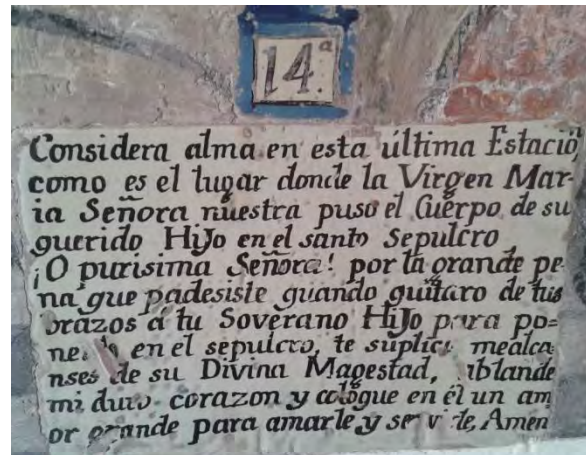 14.a
Considera alma en esta última Estació
como es el lugar donde la Virgen Mar-
ia Señora nuestra puso el Cuerpo de su
querido HiJo en el santo Sepulcro
¡O purisima Señora! por la grande pe-
na que padesiste quando quitaro de tus
brazos á tu Soverano HiJo para po-
en el sepulcro, te suplico mealca-
nses de su Divina Magestad, ablande
mi duro corazon y coloque en él un am
or grande para amarle y Amén